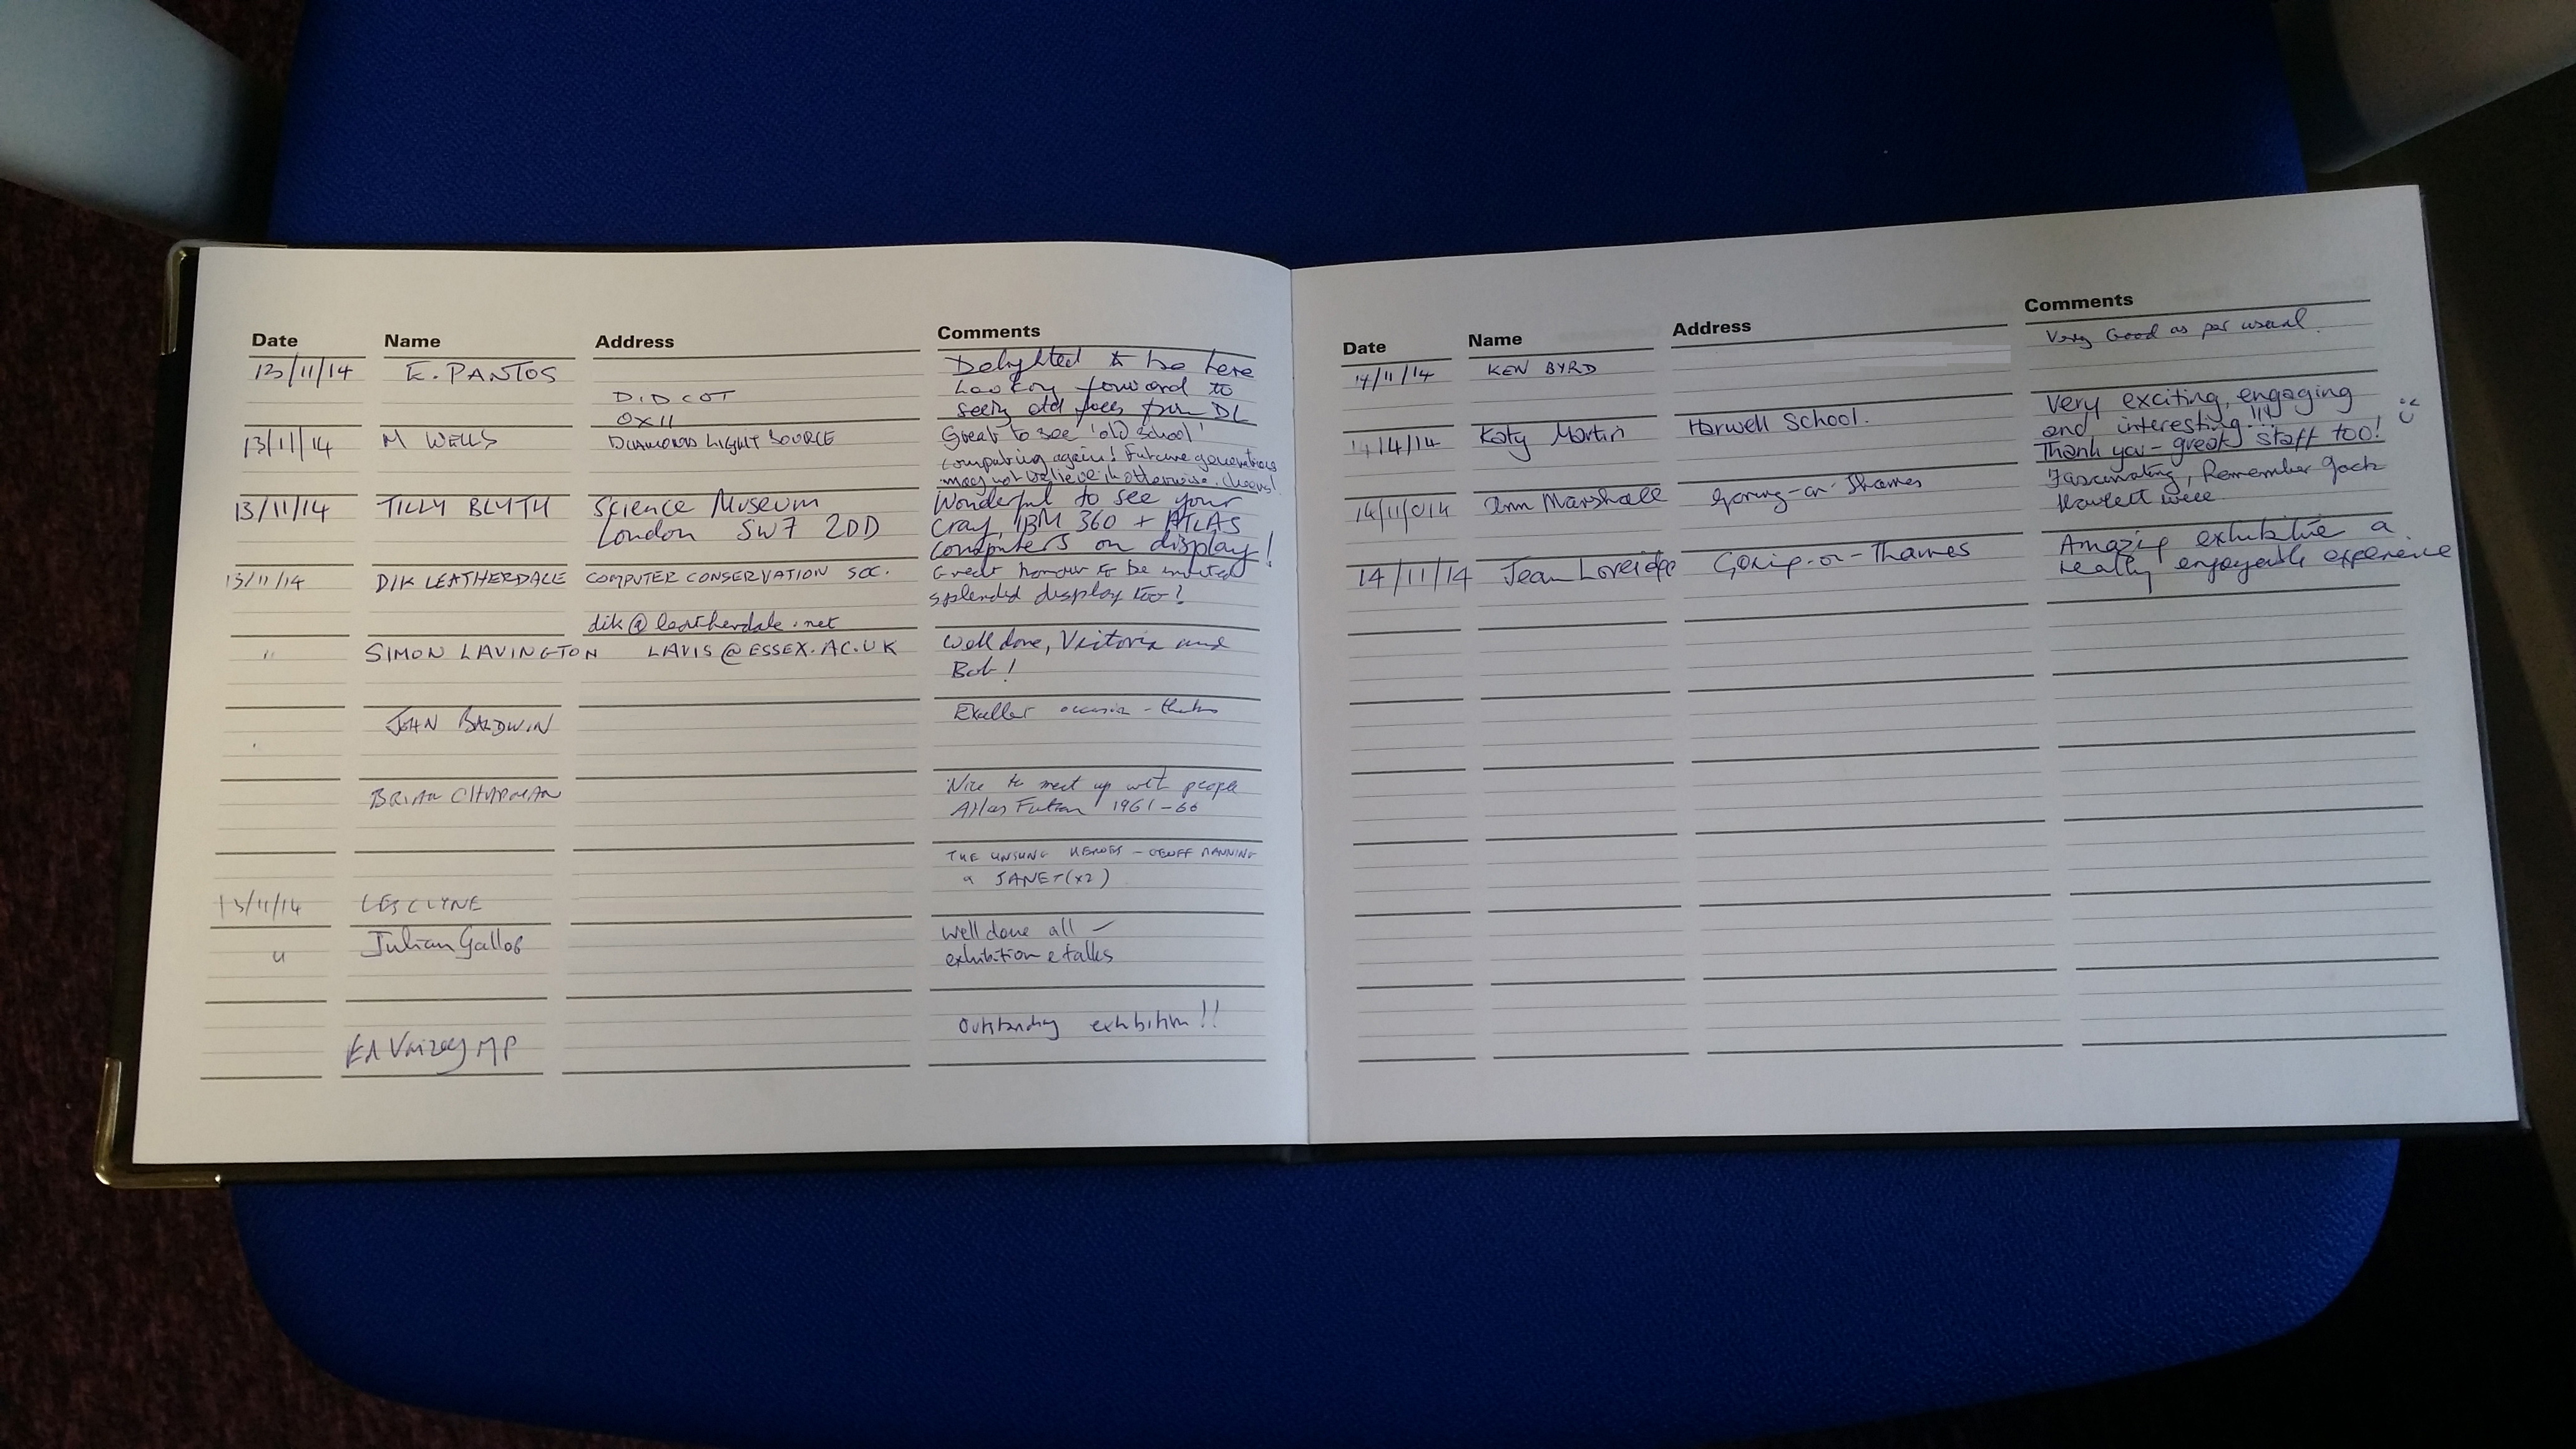 Date Name Address Comments
13/11/14 E. PANTOS Delighted to be here
Looking forward to
DIDCOT
seeing old faces from DL
OX11
13/11/14 M WELLS DIAMOND LIGHT SOURCE Great to see 'old school'
computing again! Future generations
may not believe it otherwise. cheers!
13/11/14 TILLY BLYTH Science Museum Wonderful to see your
London SW7 2DD Cray, IBM 360 + ATLAS
computers on display!
13/11/14 DIK LEATHERDALE COMPUTER CONSERVATION SOC. Great honour to be invited
splendid display too!
dik@leatherdale.net
" SIMON LAVINGTON LAVIS@ESSEX.AC.UK Well done, Victoria and
Bob!
JOHN BALDWIN Excellent occasion - thanks
BRIAN CHAPMAN Nice to meet up with people
Atlas 1961-66
THE UNSUNG HEROES - GEOFF MANNING
& JANET (x2)
13/11/14 LES CLYNE
" Julian Gallop Well done all -
exhibition & talks
Outstanding exhibition!!
Ed Vaizey MP
Date Name Address Comments
14/11/14 KEN BYRD Very Good as per usual.
14/14 Katy Martin Harwell School. Very exciting, engaging
and interesting!!!
Thank you - great staff too!
14/11/014 Ann Marshall Goring-on-Thames Fascinating, Remember Jack
Howlett well
14/11/14 Jean Loveidge Goring-on-Thames Amazing exhibition a
really enjoyable experience